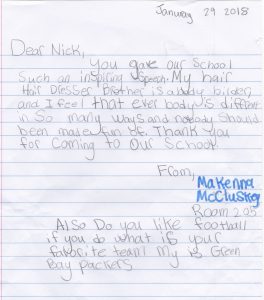 January 29 2018
Dear Nick,
You gave our School
Such an inspiring speech. My hair
Hair Dresser brother is a body bilder,
and I feel that ever body is different
in So many ways and nobody Should
been made fun of. Thank you
for Coming to Our School.
From,
Makenna
McCluskey
Room 205
Also Do you like football
if you do what is your
favorite team? My is Green
Bay Packers.